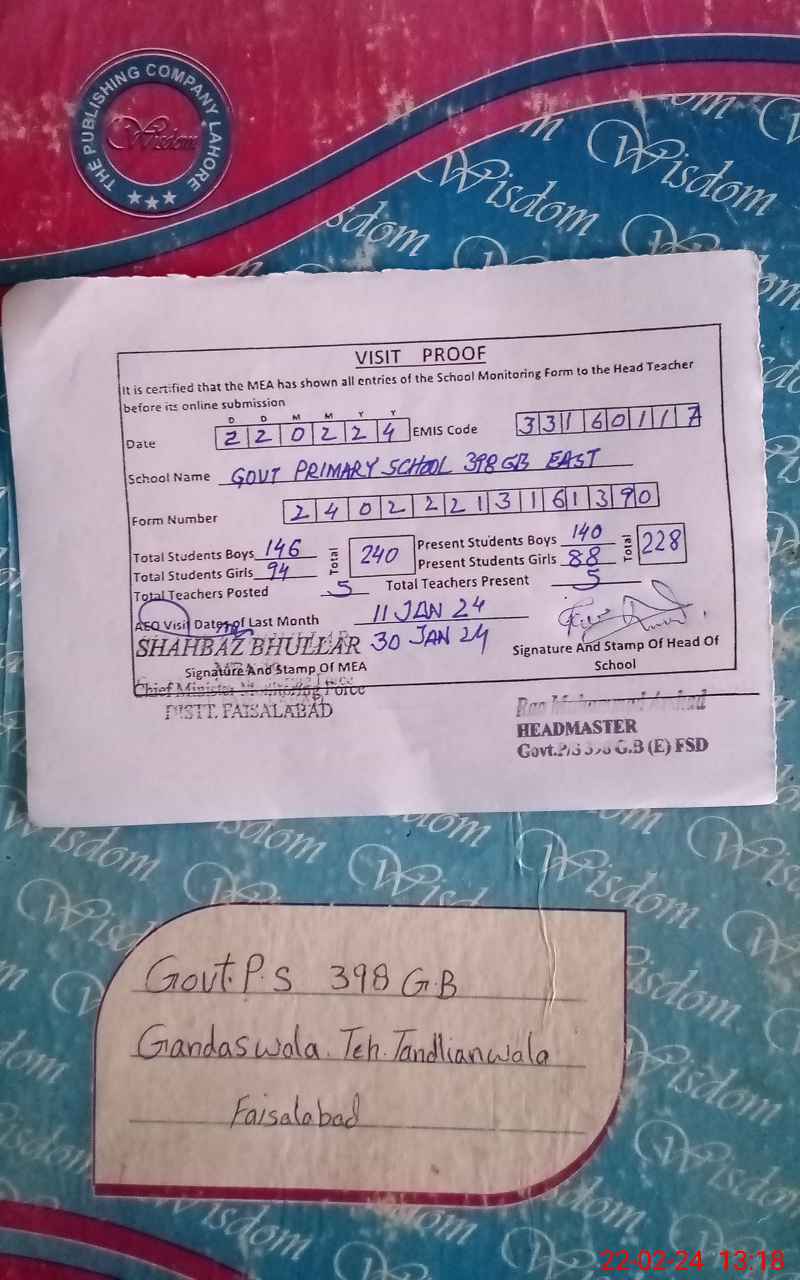 THE PUBLISHING COMPANY LAHORE
Wisdom
Wisdom
Wisdom
VISIT PROOF
It is certified that the MEA has shown all entries of the School Monitoring Form to the Head Teacher
before its online submission
D D M M Y Y
Date 2 2 0 2 2 4 EMIS Code 3 3 1 6 0 1 1 7
School Name GOVT PRIMARY SCHOOL 398 GB EAST
Form Number 2 4 0 2 2 2 1 3 1 6 1 3 9 0
Total Students Boys 146 Total 240 Present Students Boys 140 Total 228
Total Students Girls 94 Present Students Girls 88
Total Teachers Posted 5 Total Teachers Present 5
AEO Visit Dates of Last Month 11 JAN 24
SHAHBAZ BHULLAR 30 JAN 24
Signature And Stamp Of MEA Signature And Stamp Of Head Of
School
Chief Minister Monitoring Force
DISTT. FAISALABAD
Rao Muhammad Arshad
HEADMASTER
Govt.P/S 398 G.B (E) FSD
Wisdom
Wisdom
Govt. P.S 398 G.B
Gandaswala. Teh. Tandlianwala
Faisalabad
22-02-24 13:18